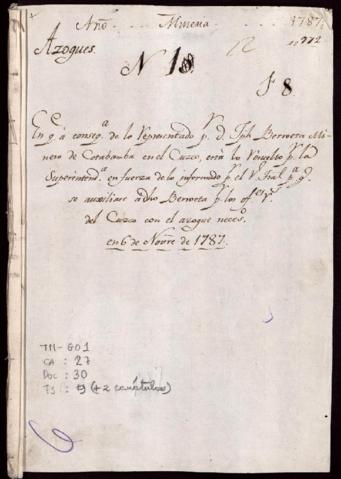 Año. Minería 1787
Azogues.
N 18
F 8
En q̃ á conseqª. de lo representado pʳ. d. Jph Berroeta Mi-
nero de Cotabamba en el Cuzco, está lo resuelto pʳ. la
Superintendª. en fuerza de lo informado pʳ. el Rˡ. Tral pª. q̃.
se auxiliase á dho Berroeta pʳ. los ofˢ. Rˢ.
del Cuzco con el azogue neces°.
en 6 de Novʳᵉ de 1787.
TM-GO1
CA : 27
DOC : 30
FS : 9 (+2 carátulas)